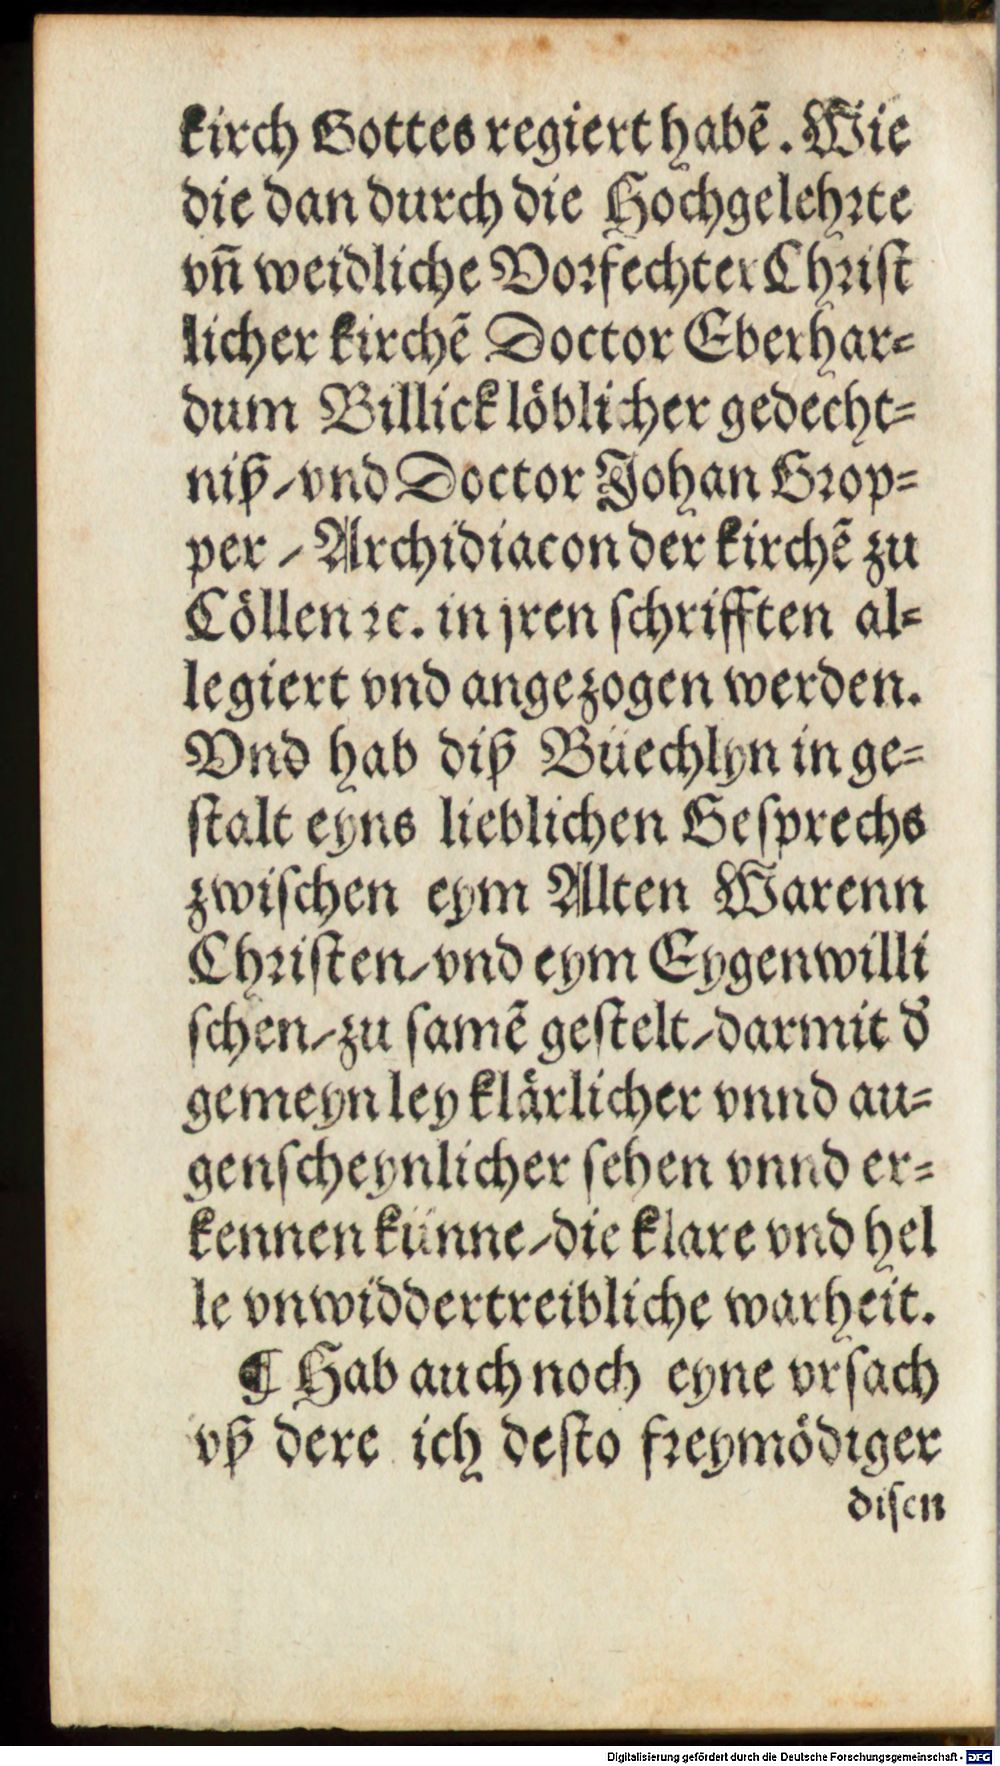 kirch Gottes regiert habẽ. Wie
die dan durch die Hochgelehrte
vñ weidliche Vorfechter Christ
licher kirchẽ Doctor Eberhar=
dum Billick löblicher gedecht=
niß/vnd Doctor Johan Grop=
per / Archidiacon der kirchẽ zu
Cöllen ꝛc. in jren schrifften al=
legiert vnd angezogen werden.
Vnd hab diß Büechlyn in ge=
stalt eyns lieblichen Gesprechs
zwischen eym Alten Warenn
Christen/vnd eym Eygenwilli
schen/zu samẽ gestelt/darmit d̕
gemeyn ley klärlicher vnnd au=
genscheynlicher sehen vnnd er=
kennen künne/die klare vnd hel
le vnwiddertreibliche warheit.
¶ Hab auch noch eyne vrsach
vß dere ich desto freymödiger
disen
Digitalisierung gefördert durch die Deutsche Forschungsgemeinschaft - DFG